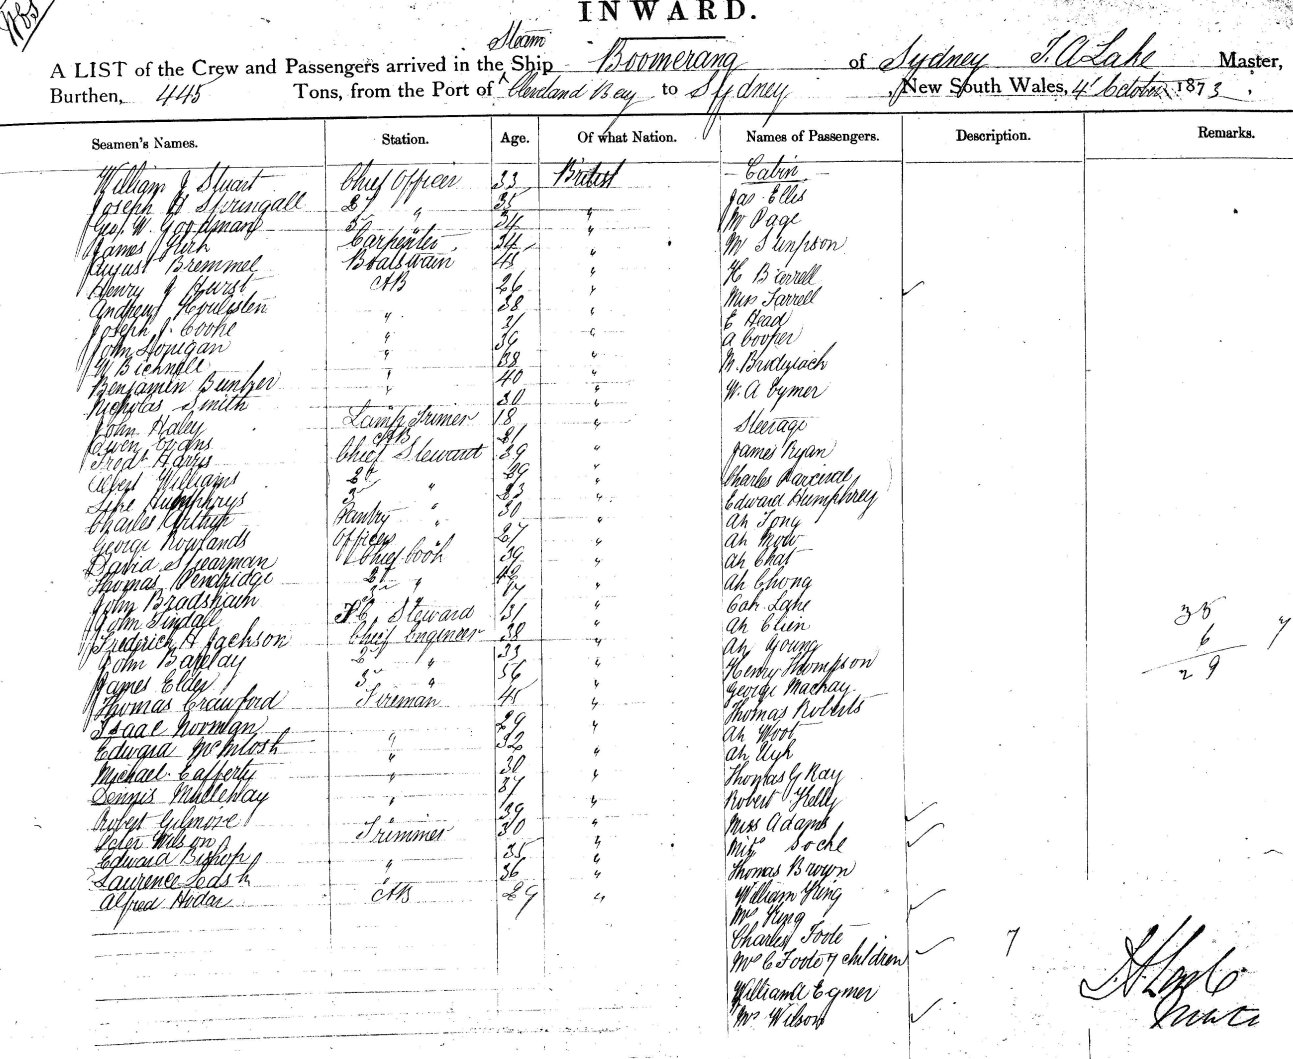 INWARD.
Steam
A LIST of the Crew and Passengers arrived in the Ship Boomerang of Sydney T. A Lake Master,
Burthen, 445 Tons, from the Port of Cleveland Bay to Sydney, New South Wales, 4 October 1873.
Seamen's Names. Station. Age. Of what Nation. Names of Passengers. Description. Remarks.
William J Stuart Chief Officer 33 British Cabin
Joseph H Springall 2d " 35 " Jas Ellis
Geo. W. Goodman 3rd " 34 " Mr Page
James Carpenter 34 " Mr Simpson
August Bremmel Boatswain 45 " H Barrell
Henry J Hurst AB 26 " Miss Farrell
Andrew Houlisten 38 " E Head
Joseph J. Cooke " 31 " A Cooper
John Lonigan " 39 "
W Bicknell " 38 " M.
Benjamin Bunker " 40 " W. A Eymer
Nicholas Smith " 30 "
John Haley Lamp Trimer 18 " Steerage
Owen Evans AB 21 "
Fredk Harris Chief Steward 39 " James Ryan
Albert Williams 2d " 29 " Charles Parcival
Luke Humphrys 3 " 23 " Edward Humphrey
Charles Arthur Pantry " 30 " Ah Tong
George Rowlands Officers " 27 " Ah Mow
David Spearman Chief Cook 39 " Ah Chat
Thomas Pendridge 2d " 42 " Ah Chong
John Bradshaw 3 " 17 " Cah Lahe
John Tindall F.C. Steward 31 " Ah Chin
Frederich H Jackson Chief Engineer 38 " Ah Young
John Barclay 2d " 33 " Henry Thompson
James Elder 3 " 56 " George Mackay
Thomas Crawford Fireman 45 " Thomas Roberts
Isaac Norman 29 " Ah Woot
Edward McIntosh " 32 " Ah
Michael Cafferty " 30 " Thomas G Ray
Dennis Mulleway " 37 " Robert Kelly
Robert Gilmore " 39 " Miss Adams
Peter Wilson Trimmer 30 " Mrs
Edward Bishop 35 " Thomas Brown
Laurence Leash " 36 " William King
Alfred Hodar AB 29 " Mrs King
Charles Foote
Mrs C Foote 7 children 7
William A Egmer
Mrs Wilson
35
6 7
29